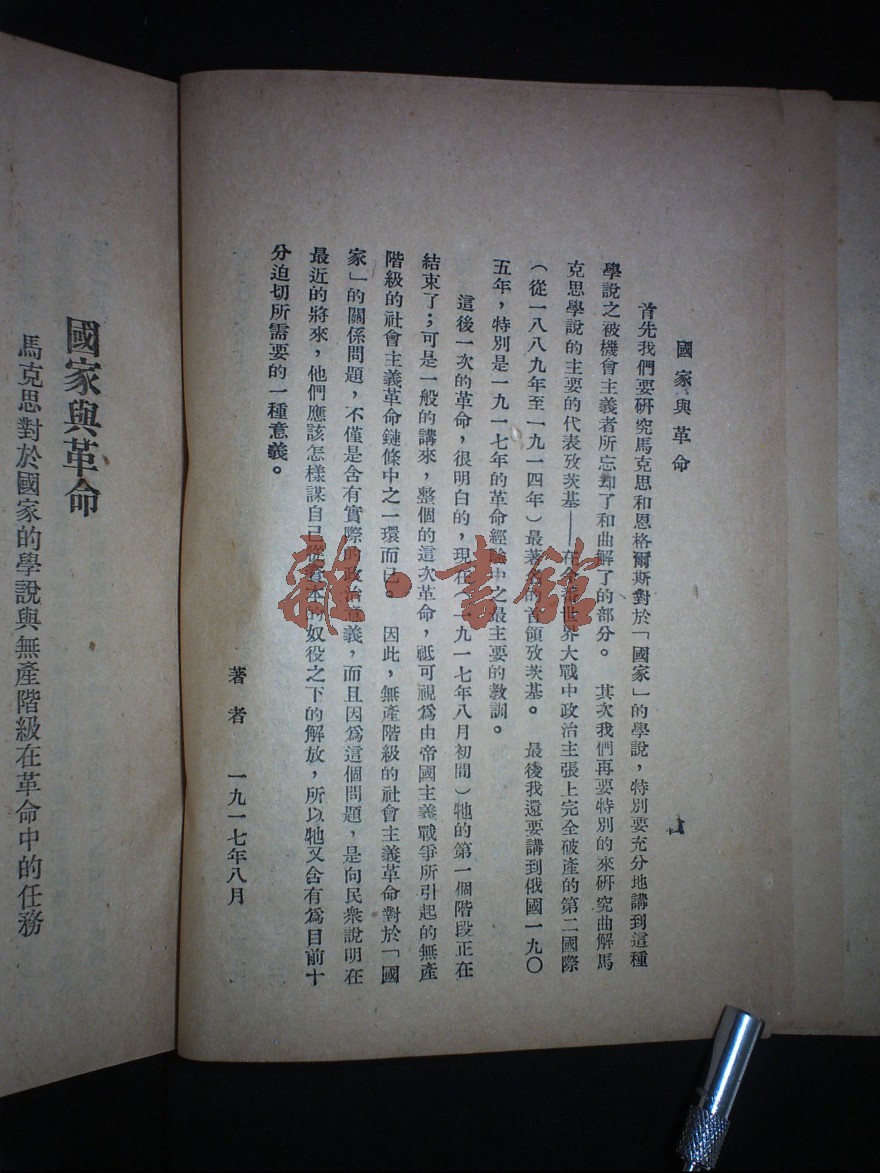 國家與革命
首先我們要硏究馬克思和恩格爾斯對於「國家」的學說，特別要充分地講到這種
學說之被機會主義者所忘却了和曲解了的部分。　其次我們再要特別的來硏究曲解馬
克思學說的主要的代表攷茨基——在今番世界大戰中政治主張上完全破產的第二國際
（從一八八九年至一九一四年）最著名的首領攷茨基。　最後我還要講到俄國一九〇
五年，特別是一九一七年的革命經驗中之最主要的敎訓。
這後一次的革命，很明白的，現在（一九一七年八月初間）牠的第一個階段正在
結束了；可是一般的講來，整個的這次革命，祗可視爲由帝國主義戰爭所引起的無產
階級的社會主義革命鏈條中之一環而已。　因此，無產階級的社會主義革命對於「國
家」的關係問題，不僅是含有實際的政治意義，而且因爲這個問題，是向民衆說明在
最近的將來，他們應該怎樣謀自己從資本的奴役之下的解放，所以牠又含有爲目前十
分迫切所需要的一種意義。
著者　一九一七年八月
國家與革命
馬克思對於國家的學說與無產階級在革命中的任務
雜·書館